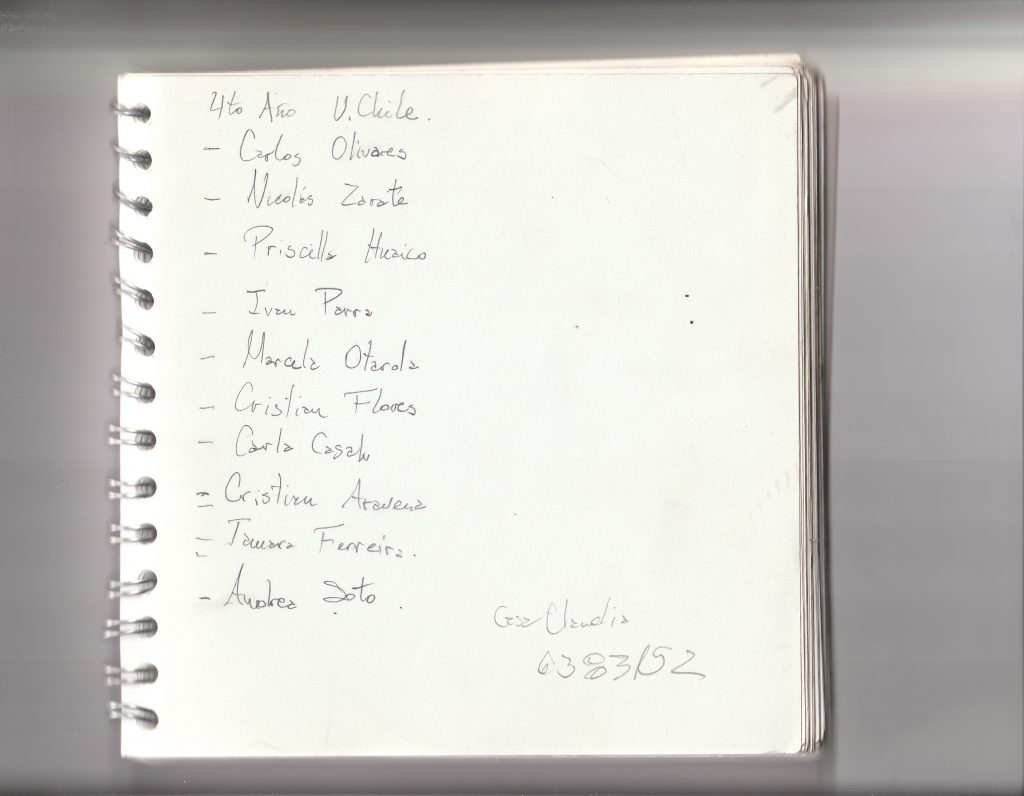 4to Año U. Chile.
- Carlos Olivares
- Nicolás Zarate
- Priscilla Huaico
- Ivan Parra
- Marcela Otarola
- Cristian Flores
- Carla Casali
- Cristian Aravena
- Tamara Ferreira.
- Andrea Soto.
Claudia
6383152